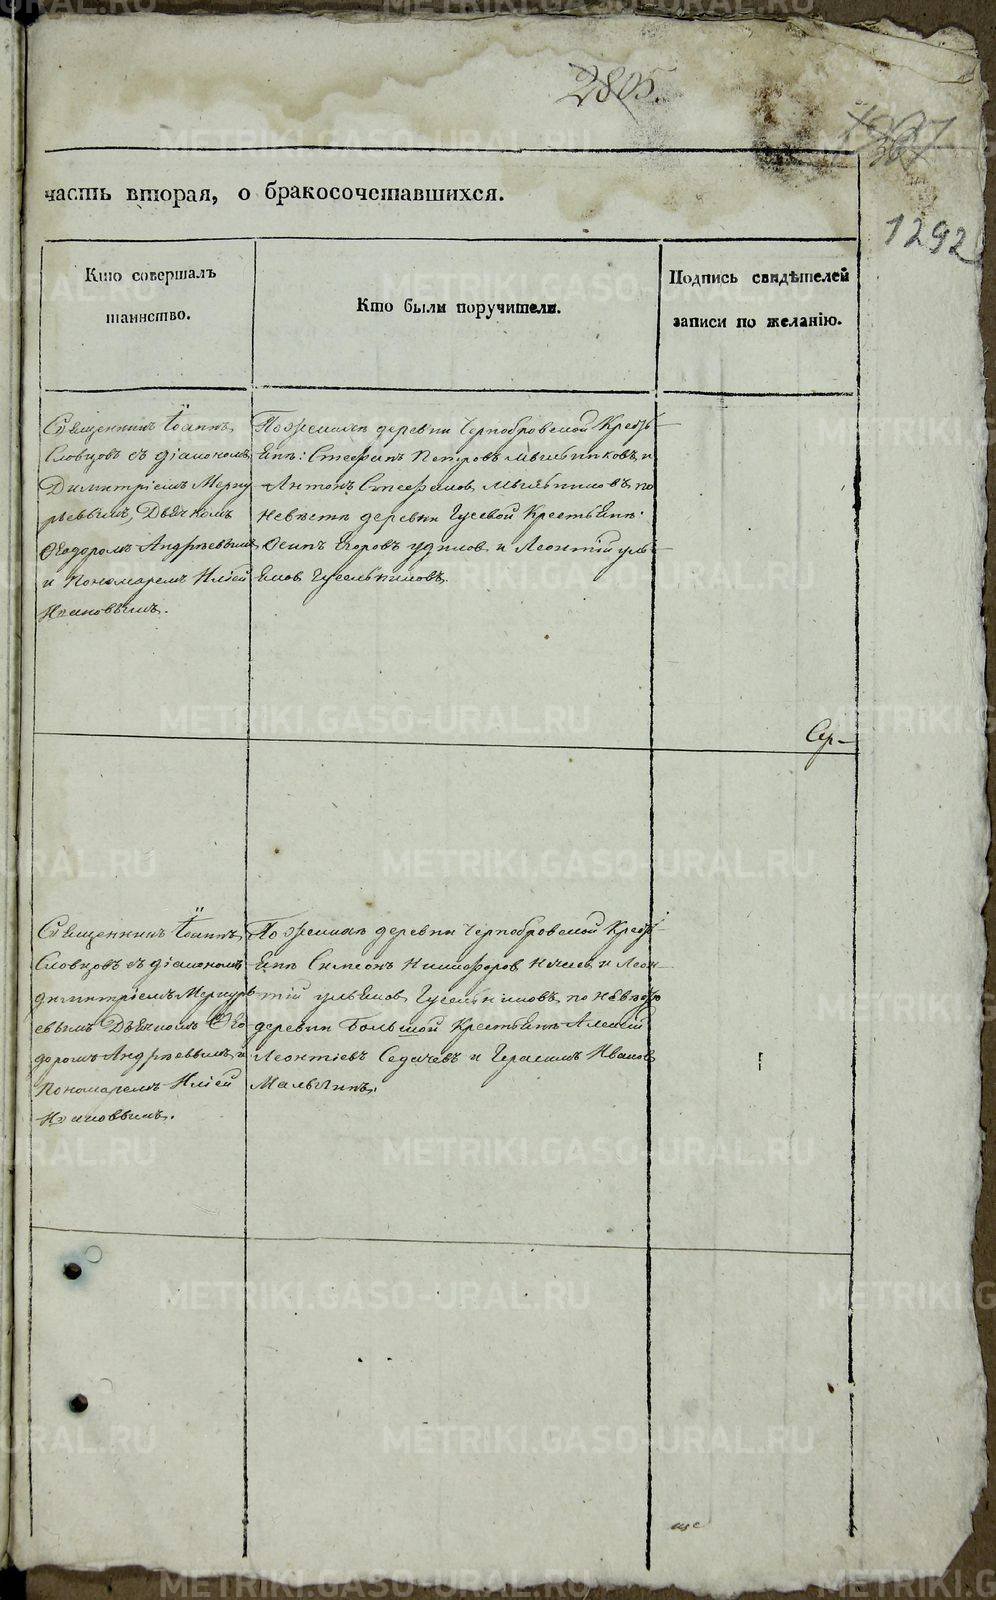 2805.
часть вторая, о бракосочетавшихся.
1292
Кто совершалъ
таинство.
Кто были поручители.
Подпись свидѣтелей
записи по желанію.
Священникъ Іоаннъ
Словцовъ съ діакономъ
Димитріемъ Мерку
рьевымъ, Дьячкомъ
Ѳеодоромъ Андрѣевымъ
и Пономаремъ Иліей
Ивановымъ.
По женихѣ деревни Чернобровской Кресть
яне: Стефанъ Петровъ Мыльниковъ, и
Антонъ Стефановъ Мыльниковъ, по
невѣстѣ деревни Гусевой Крестьяне:
Осипъ Егоровъ Удиловъ и Леонтій Уль
яновъ Гусельниковъ.
Сер-
Священникъ Іоаннъ
Словцовъ съ діакономъ
Димитріемъ Меркурь
евымъ Дьячкомъ Ѳео
доромъ Андрѣевымъ и
Пономаремъ Иліей
Ивановымъ.
По женихѣ деревни Чернобровской Кресть
яне Симеонъ Никифоровъ и Леон
тій Ульяновъ Гусельниковъ, по невѣстѣ
деревни Большой Крестьяне Алексій
Леонтіевъ Седачевъ и Герасимъ Ивановъ
Малыгинъ.
METRIKI.GASO-URAL.RU